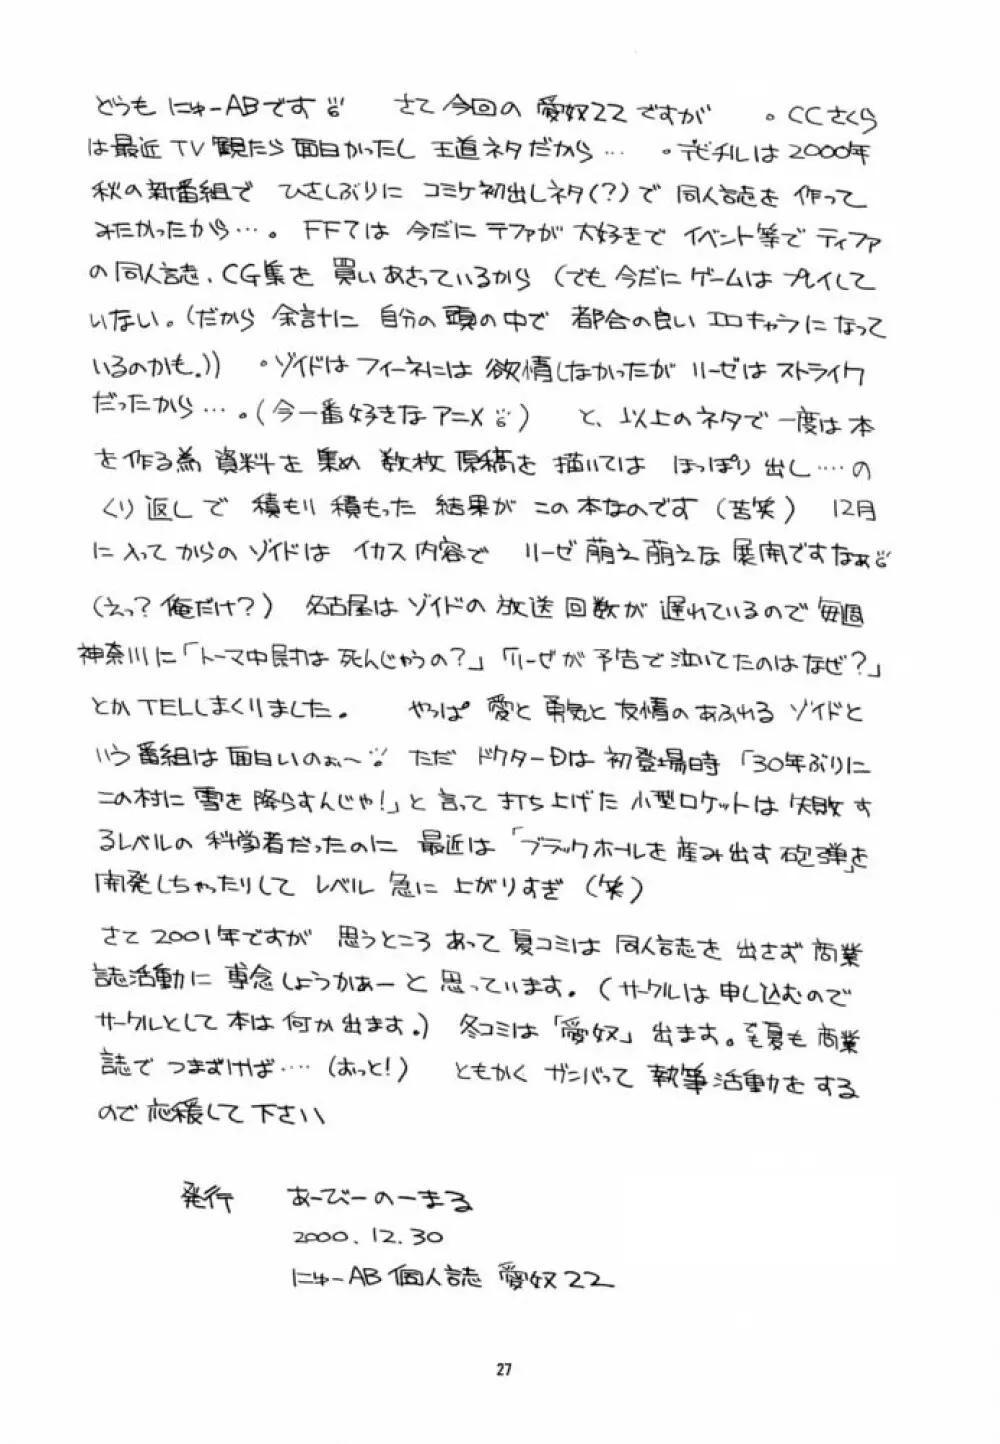 どうも にゅーABです さて今回の 愛奴22ですが 。CCさくら
は最近 TV観たら面白かったし 王道ネタだから… 。デビチルは2000年
秋の新番組で ひさしぶりに コミケ初出しネタ(?)で 同人誌を 作って
みたかったから…。 FF7は 今だに ティファが 大好きで イベント等で ティファ
の同人誌、CG集を 買いあさっているから (でも今だに ゲームは プレイして
いない。(だから 余計に 自分の頭の中で 都合の良い エロキャラになって
いるのかも。)) 。ゾイドは フィーネには 欲情しなかったが リーゼは ストライク
だったから…。(今一番好きな アニメ) と、以上のネタで 一度は本
を作る為 資料を集め 数枚原稿を 描いては ほっぽり出し‥‥の
くり返しで 積もり積もった 結果が この本なのです(苦笑) 12月
に入ってからのゾイドは イカス内容で リーゼ萌え萌えな 展開ですなぁ
(えっ? 俺だけ?) 名古屋は ゾイドの放送回数が 遅れているので 毎週
神奈川に「トーマ中尉は 死んじゃうの?」「リーゼが 予告で泣いてたのはなぜ?」
とかTELしまくりました。 やっぱ 愛と勇気と友情のあふれる ゾイドと
いう番組は面白いのぉ〜 ただ ドクターDは 初登場時「30年ぶりに
この村に雪を降らすんじゃ!」と言って 打ち上げた 小型ロケットは 失敗す
るレベルの 科学者だったのに 最近は「ブラックホールを産み出す砲弾」を
開発しちゃったりして レベル 急に 上がりすぎ(笑)
さて2001年ですが 思うところ あって 夏コミは 同人誌を 出さず 商業
誌活動に 専念しようかぁーと 思っています。(サークルは 申し込むので
サークルとして 本は 何か出ます。) 冬コミは「愛奴」出ます。でも夏も商業
誌で つまずけば‥‥(おっと!) ともかく ガンバって 執筆活動をする
ので 応援して 下さい
発行 あーびーのーまる
2000.12.30
にゅーAB個人誌 愛奴22
27